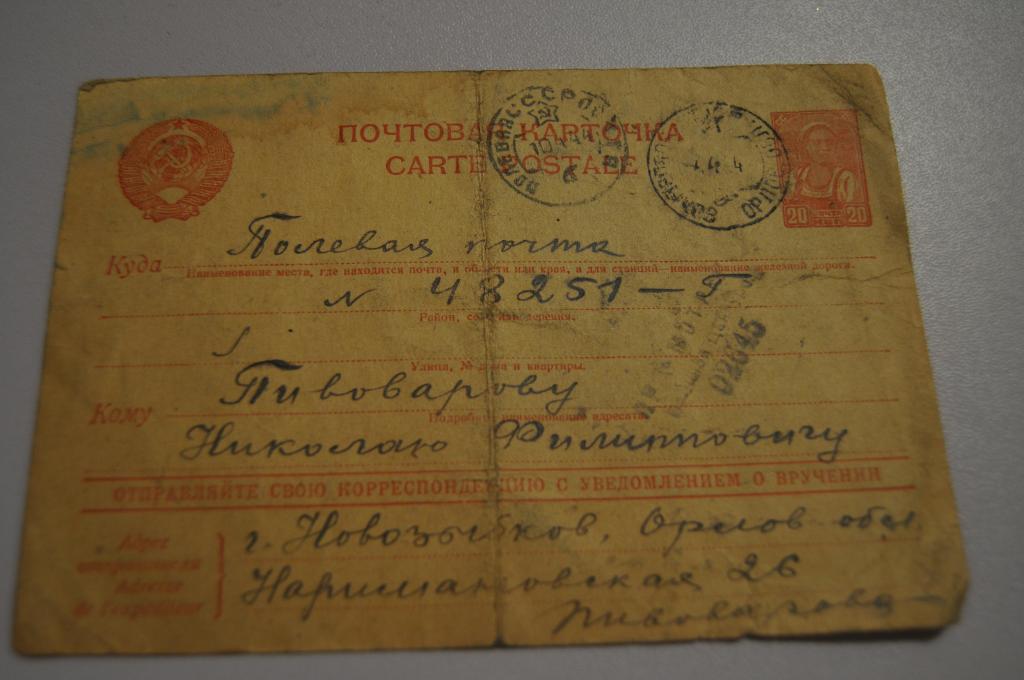 ПОЧТОВАЯ КАРТОЧКА
CARTE POSTALE
20 20
Куда Полевая почта
Наименование места, где находится почта, и области или края, а для станций—наименование железной дороги.
N 48251—Г
Район, село или деревня.
Улица, № дома и квартиры.
Кому Пивоварову
Подробное наименование адресата.
Николаю Филипповичу
02645
ОТПРАВЛЯЙТЕ СВОЮ КОРРЕСПОНДЕНЦИЮ С УВЕДОМЛЕНИЕМ О ВРУЧЕНИИ
Адрес
отправителя
Adresse
de l'expéditeur
г. Новозыбков, Орлов обл.
Наримановская 26
Пивоварова